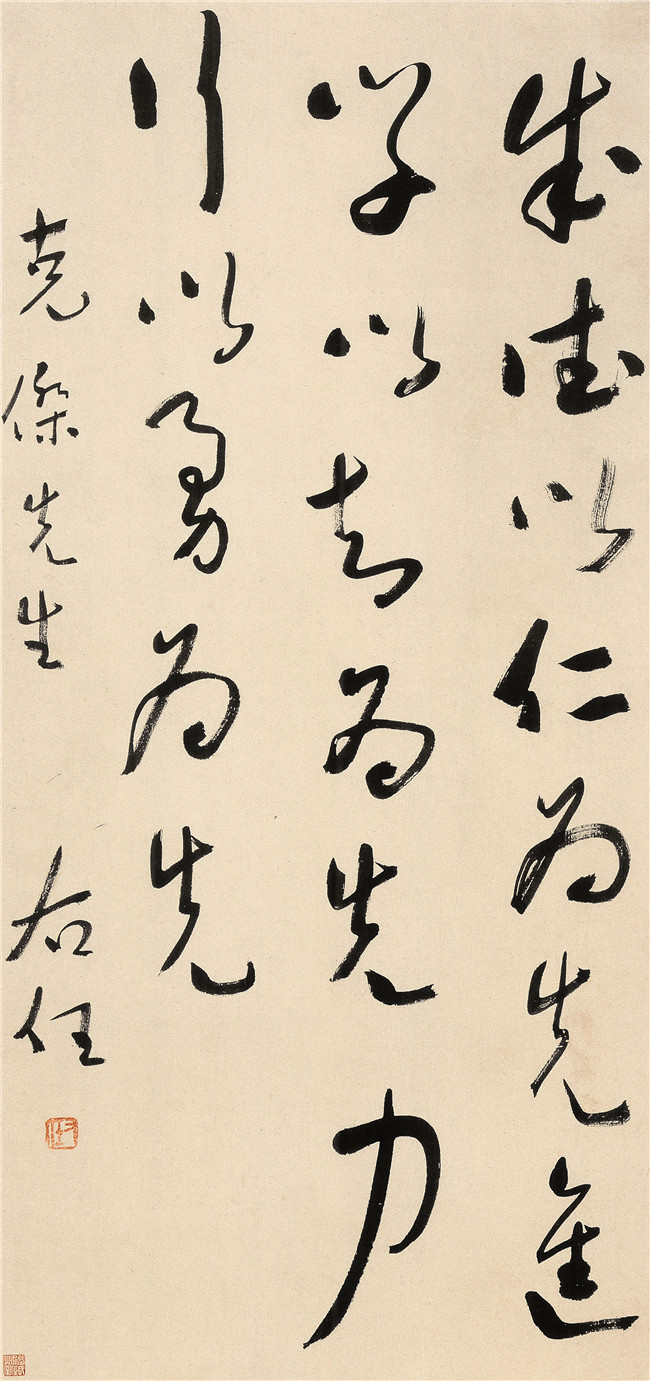 成德以仁為先進
學以知為先力
行以勇為先
克傑先生
右任